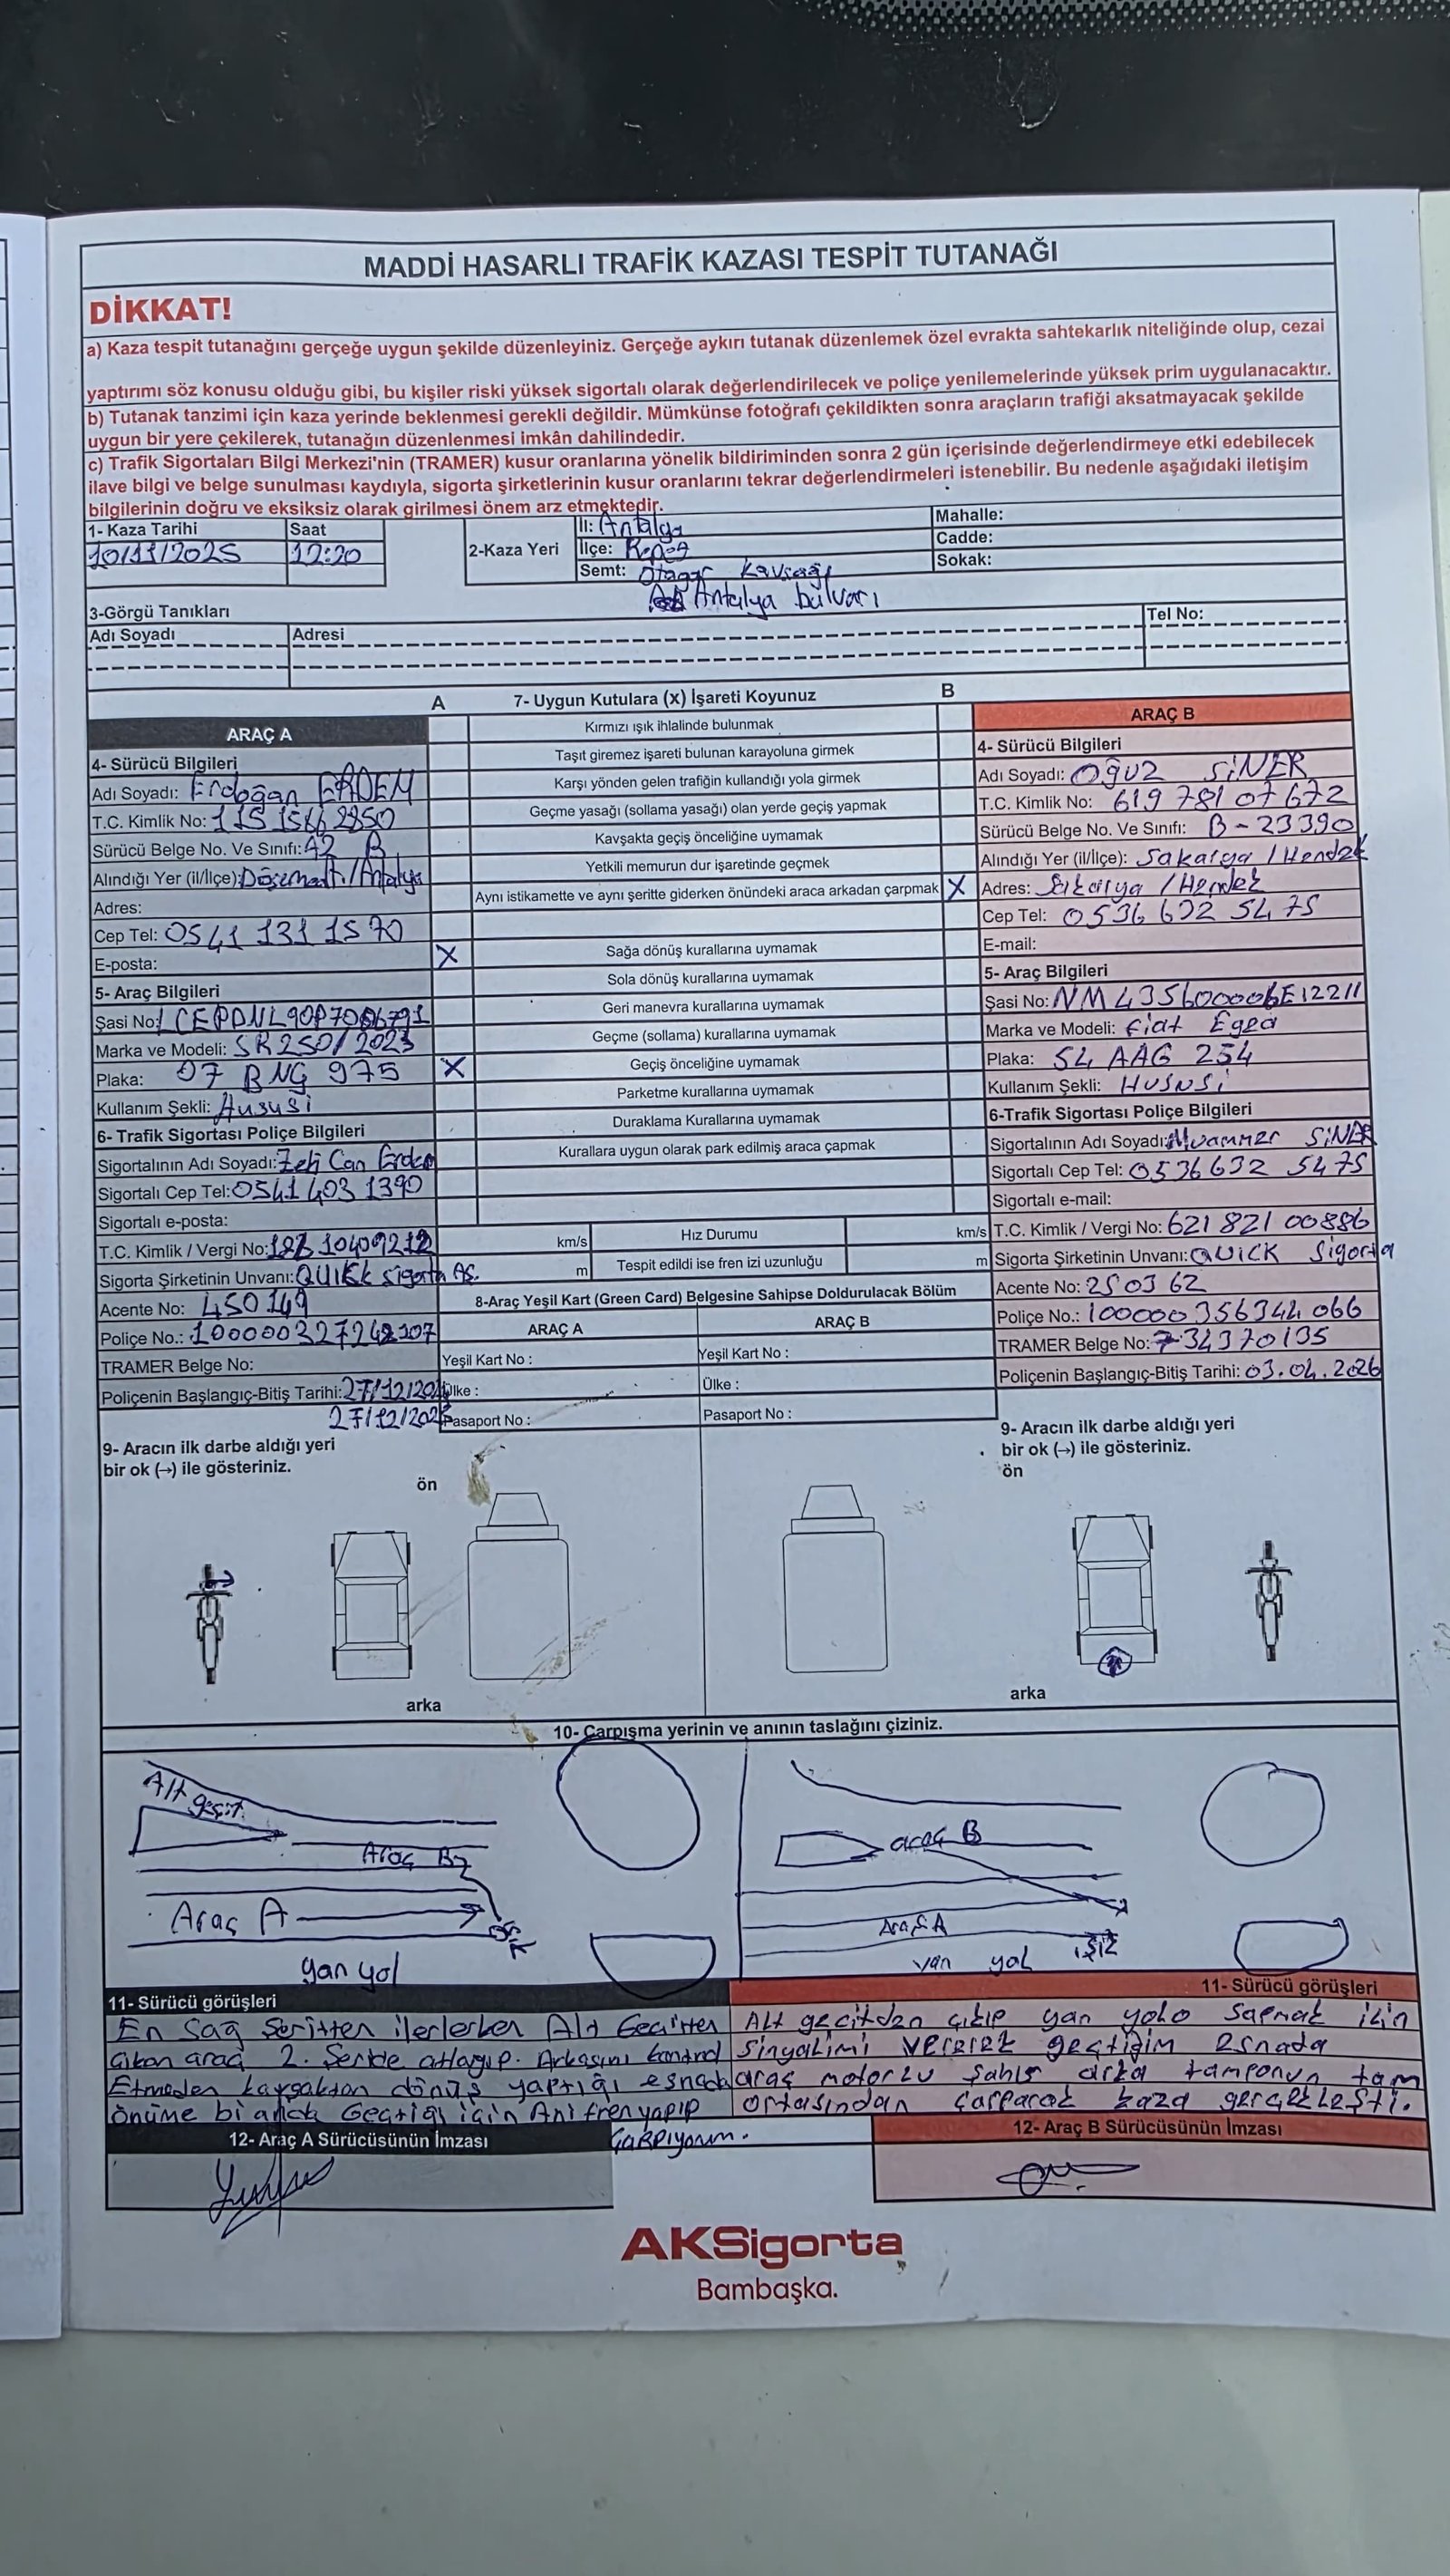 MADDİ HASARLI TRAFİK KAZASI TESPİT TUTANAĞI
DİKKAT!
a) Kaza tespit tutanağını gerçeğe uygun şekilde düzenleyiniz. Gerçeğe aykırı tutanak düzenlemek özel evrakta sahtekarlık niteliğinde olup, cezai
yaptırımı söz konusu olduğu gibi, bu kişiler riski yüksek sigortalı olarak değerlendirilecek ve poliçe yenilemelerinde yüksek prim uygulanacaktır.
b) Tutanak tanzimi için kaza yerinde beklenmesi gerekli değildir. Mümkünse fotoğrafı çekildikten sonra araçların trafiği aksatmayacak şekilde
uygun bir yere çekilerek, tutanağın düzenlenmesi imkân dahilindedir.
c) Trafik Sigortaları Bilgi Merkezi'nin (TRAMER) kusur oranlarına yönelik bildiriminden sonra 2 gün içerisinde değerlendirmeye etki edebilecek
ilave bilgi ve belge sunulması kaydıyla, sigorta şirketlerinin kusur oranlarını tekrar değerlendirmeleri istenebilir. Bu nedenle aşağıdaki iletişim
bilgilerinin doğru ve eksiksiz olarak girilmesi önem arz etmektedir.
1- Kaza Tarihi
10/11/2025
Saat
12:20
2-Kaza Yeri
İl: Antalya
İlçe:
Semt: Otogar Kavşağı
Antalya bulvarı
Mahalle:
Cadde:
Sokak:
3-Görgü Tanıkları
Adı Soyadı
Adresi
Tel No:
A
7- Uygun Kutulara (x) İşareti Koyunuz
B
ARAÇ A
4- Sürücü Bilgileri
Adı Soyadı: Erdoğan ERDEM
T.C. Kimlik No:
Sürücü Belge No. Ve Sınıfı: A2 B
Alındığı Yer (il/İlçe): Döşemealtı/Antalya
Adres:
Cep Tel: 0541 131 1570
E-posta:
5- Araç Bilgileri
Şasi No:
Marka ve Modeli: SR250/2023
Plaka: 07 BNG 975
Kullanım Şekli: Hususi
6- Trafik Sigortası Poliçe Bilgileri
Sigortalının Adı Soyadı: Can Erdem
Sigortalı Cep Tel: 0541 403 1390
Sigortalı e-posta:
T.C. Kimlik / Vergi No:
Sigorta Şirketinin Unvanı: QUICK Sigorta AŞ.
Acente No: 450149
Poliçe No.:
TRAMER Belge No:
Poliçenin Başlangıç-Bitiş Tarihi: 27/12/202
27/12/202
Kırmızı ışık ihlalinde bulunmak
Taşıt giremez işareti bulunan karayoluna girmek
Karşı yönden gelen trafiğin kullandığı yola girmek
Geçme yasağı (sollama yasağı) olan yerde geçiş yapmak
Kavşakta geçiş önceliğine uymamak
Yetkili memurun dur işaretinde geçmek
Aynı istikamette ve aynı şeritte giderken önündeki araca arkadan çarpmak X
X Sağa dönüş kurallarına uymamak
Sola dönüş kurallarına uymamak
Geri manevra kurallarına uymamak
Geçme (sollama) kurallarına uymamak
X Geçiş önceliğine uymamak
Parketme kurallarına uymamak
Duraklama Kurallarına uymamak
Kurallara uygun olarak park edilmiş araca çapmak
km/s Hız Durumu km/s
m Tespit edildi ise fren izi uzunluğu m
8-Araç Yeşil Kart (Green Card) Belgesine Sahipse Doldurulacak Bölüm
ARAÇ A
Yeşil Kart No :
Ülke :
Pasaport No :
ARAÇ B
Yeşil Kart No :
Ülke :
Pasaport No :
ARAÇ B
4- Sürücü Bilgileri
Adı Soyadı: OĞUZ SiNER
T.C. Kimlik No: 619 781 07672
Sürücü Belge No. Ve Sınıfı: B-23390
Alındığı Yer (il/İlçe): Sakarya / Hendek
Adres: Sakarya / Hendek
Cep Tel: 0536 632 54 75
E-mail:
5- Araç Bilgileri
Şasi No:
Marka ve Modeli: fiat Egea
Plaka: 54 AAG 254
Kullanım Şekli: HUSUSi
6-Trafik Sigortası Poliçe Bilgileri
Sigortalının Adı Soyadı: Muammer SiNER
Sigortalı Cep Tel: 0536 632 5475
Sigortalı e-mail:
T.C. Kimlik / Vergi No: 621 821 00886
Sigorta Şirketinin Unvanı: QUiCK Sigorta
Acente No: 2503 62
Poliçe No.: 100000 356344 066
TRAMER Belge No: 734370135
Poliçenin Başlangıç-Bitiş Tarihi: 03.04.2026
9- Aracın ilk darbe aldığı yeri
bir ok (→) ile gösteriniz.
ön
arka
9- Aracın ilk darbe aldığı yeri
bir ok (→) ile gösteriniz.
ön
arka
10- Çarpışma yerinin ve anının taslağını çiziniz.
Alt geçit
Araç B
Araç A
yan yol
araç B
Araç A
yan yol
11- Sürücü görüşleri
En Sağ Şeritten ilerlerken Alt Geçitten
Çıkan araç 2. Şeride atlayıp. Arkasını kontrol
Etmeden kavşaktan dönüş yaptığı esnada
önüme bi anda Geçtiği için Ani fren yapıp
Çarpıyorum.
11- Sürücü görüşleri
Alt geçitden çıkıp yan yola sapmak için
Sinyalimi vererek geçtiğim esnada
araç motorlu şahıs arka tamponun tam
ortasından çarparak kaza gerçekleşti.
12- Araç A Sürücüsünün İmzası
12- Araç B Sürücüsünün İmzası
AKSigorta
Bambaşka.